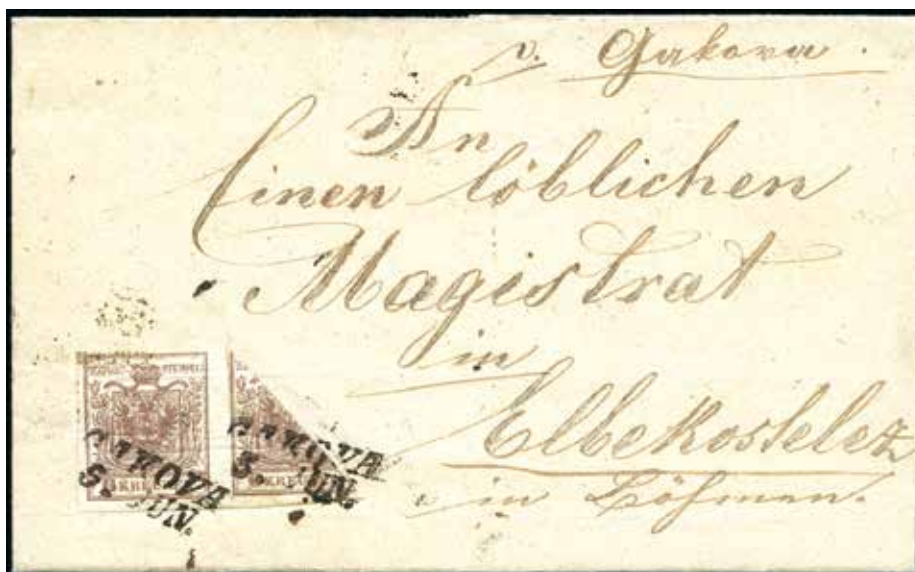 v. Gakova.
An
Einen löblichen
Magistrat
in
Elbekosteletz
in Böhmen.
STEMPEL
GAKOVA
5. JUN.
GAKOVA
5. JUN.